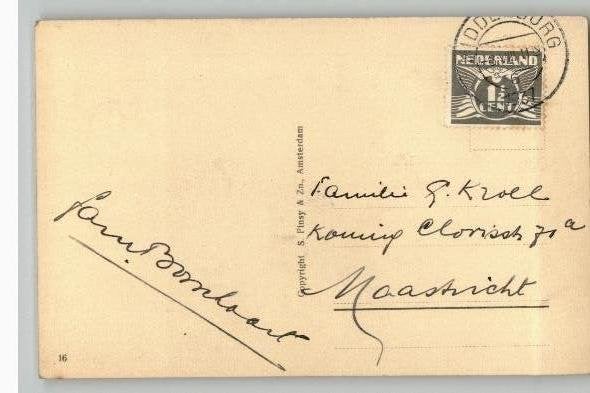 MIDDELBURG
NEDERLAND
1½
CENT
Copyright S. Pinsy & Zn., Amsterdam
Familie G. Kroll
Koning Clovisstr 70a
Maastricht
Fam.
16